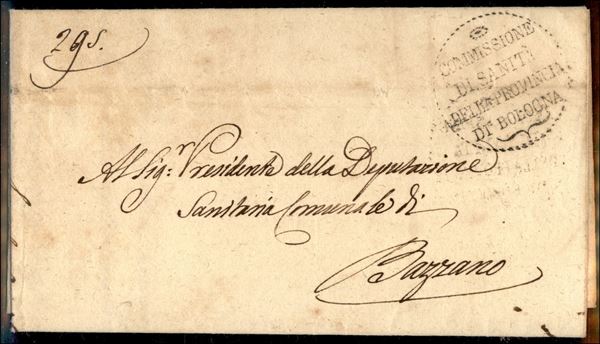 29s.
COMMISSIONE
DI SANITÀ
DELLA PROVINCIA
DI BOLOGNA
Al Sig.r Presidente della Deputazione
Sanitaria Comunale di
Bazzano